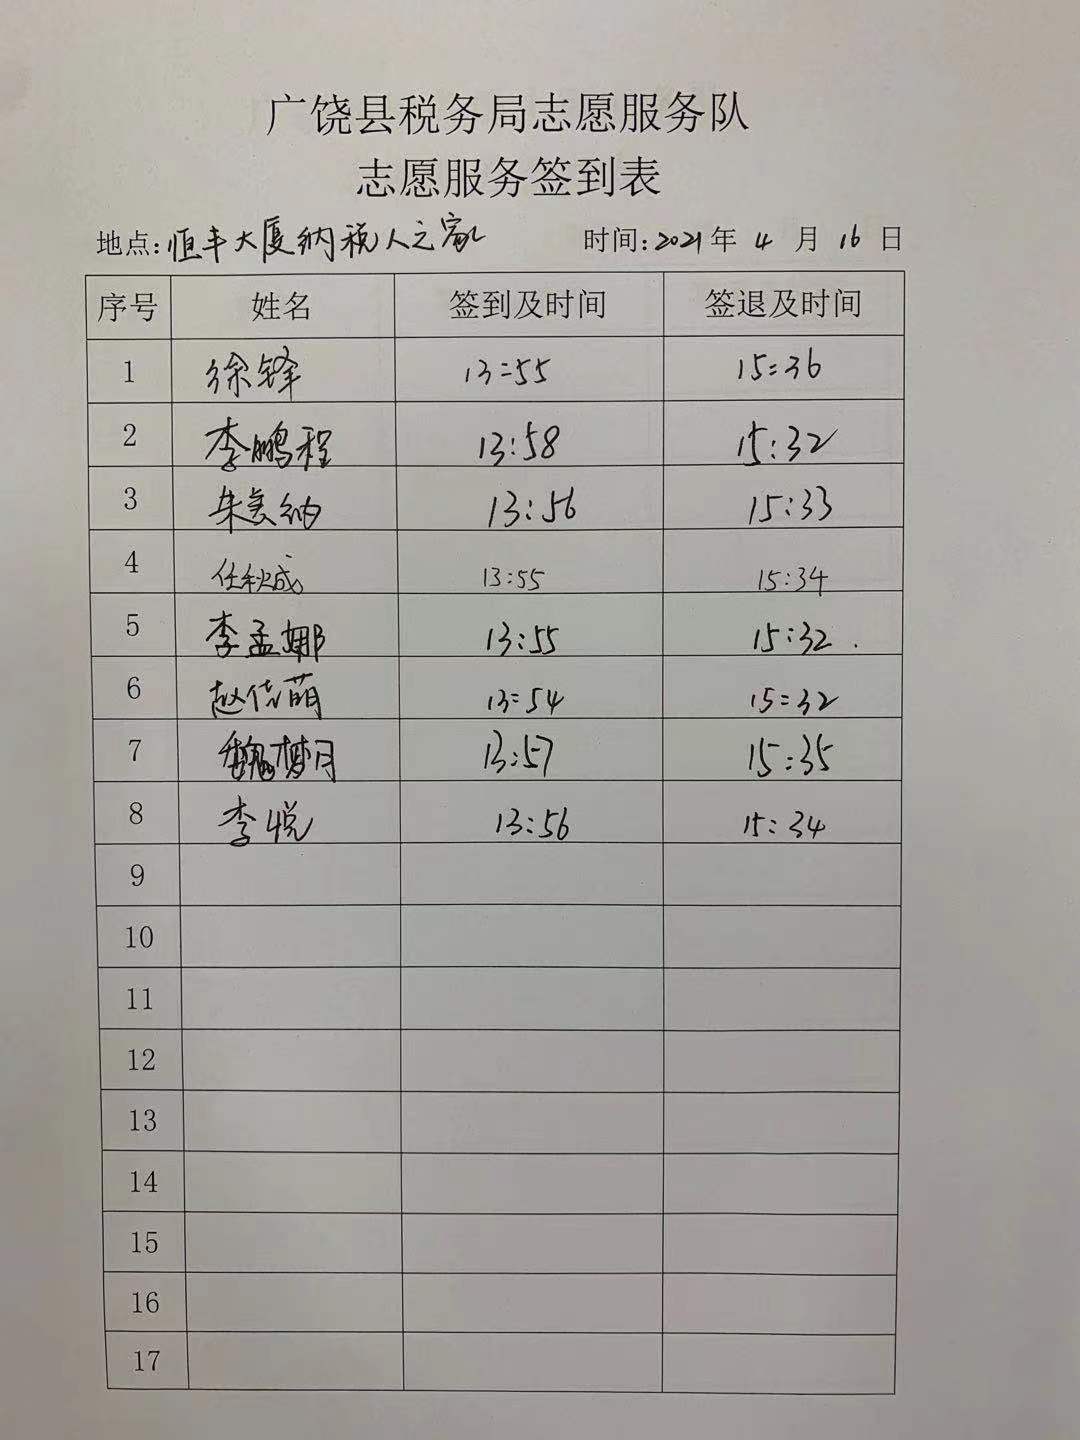 广饶县税务局志愿服务队
志愿服务签到表
地点:恒丰大厦纳税人之家 时间:2021年 4 月 16 日
序号 姓名 签到及时间 签退及时间
1 徐锋 13:55 15:36
2 李鹏程 13:58 15:32
3 朱美纳 13:56 15:33
4 任秋成 13:55 15:34
5 李孟娜 13:55 15:32
6 赵倩萌 13:54 15:32
7 魏梦月 13:57 15:35
8 李悦 13:56 15:34
9
10
11
12
13
14
15
16
17